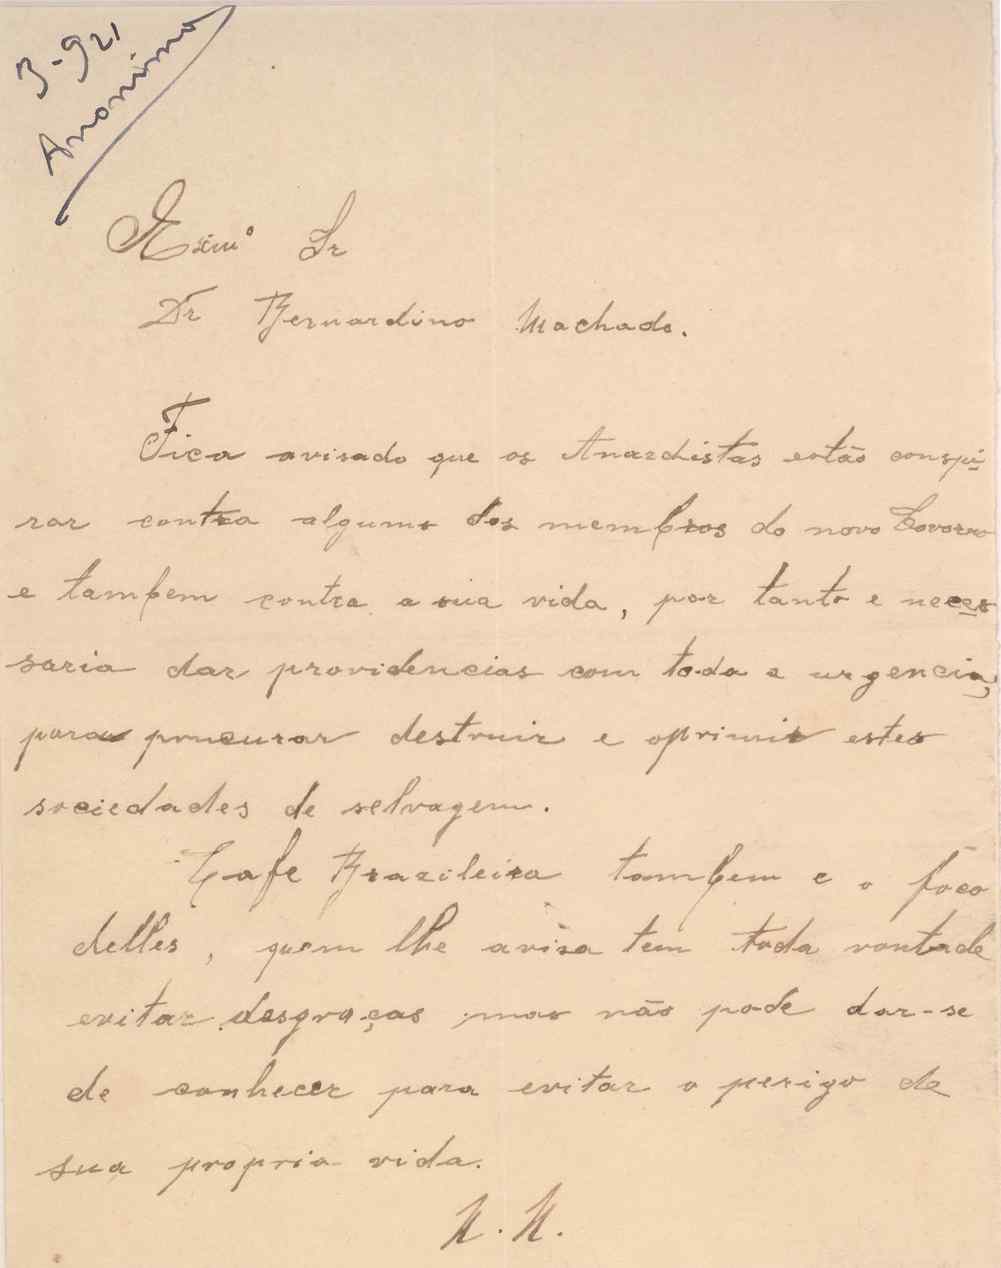 3-921
Anonimo
Exmº Sr
Dr Bernardino Machado.
Fica avisado que os Anardistas estão conspi-
rar contra algums dos membros do novo Governo
e tambem contra a sua vida, por tanto e neces
saria dar providencias com toda a urgencia,
para procurar destruir e oprimir estes
sociedades de selvagem.
Cafe Brazileira tambem e o foco
delles, quem lhe avisa tem toda vontade
evitar desgraças mas não pode dar-se
de conhecer para evitar o perigo de
sua propria vida.
N.N.